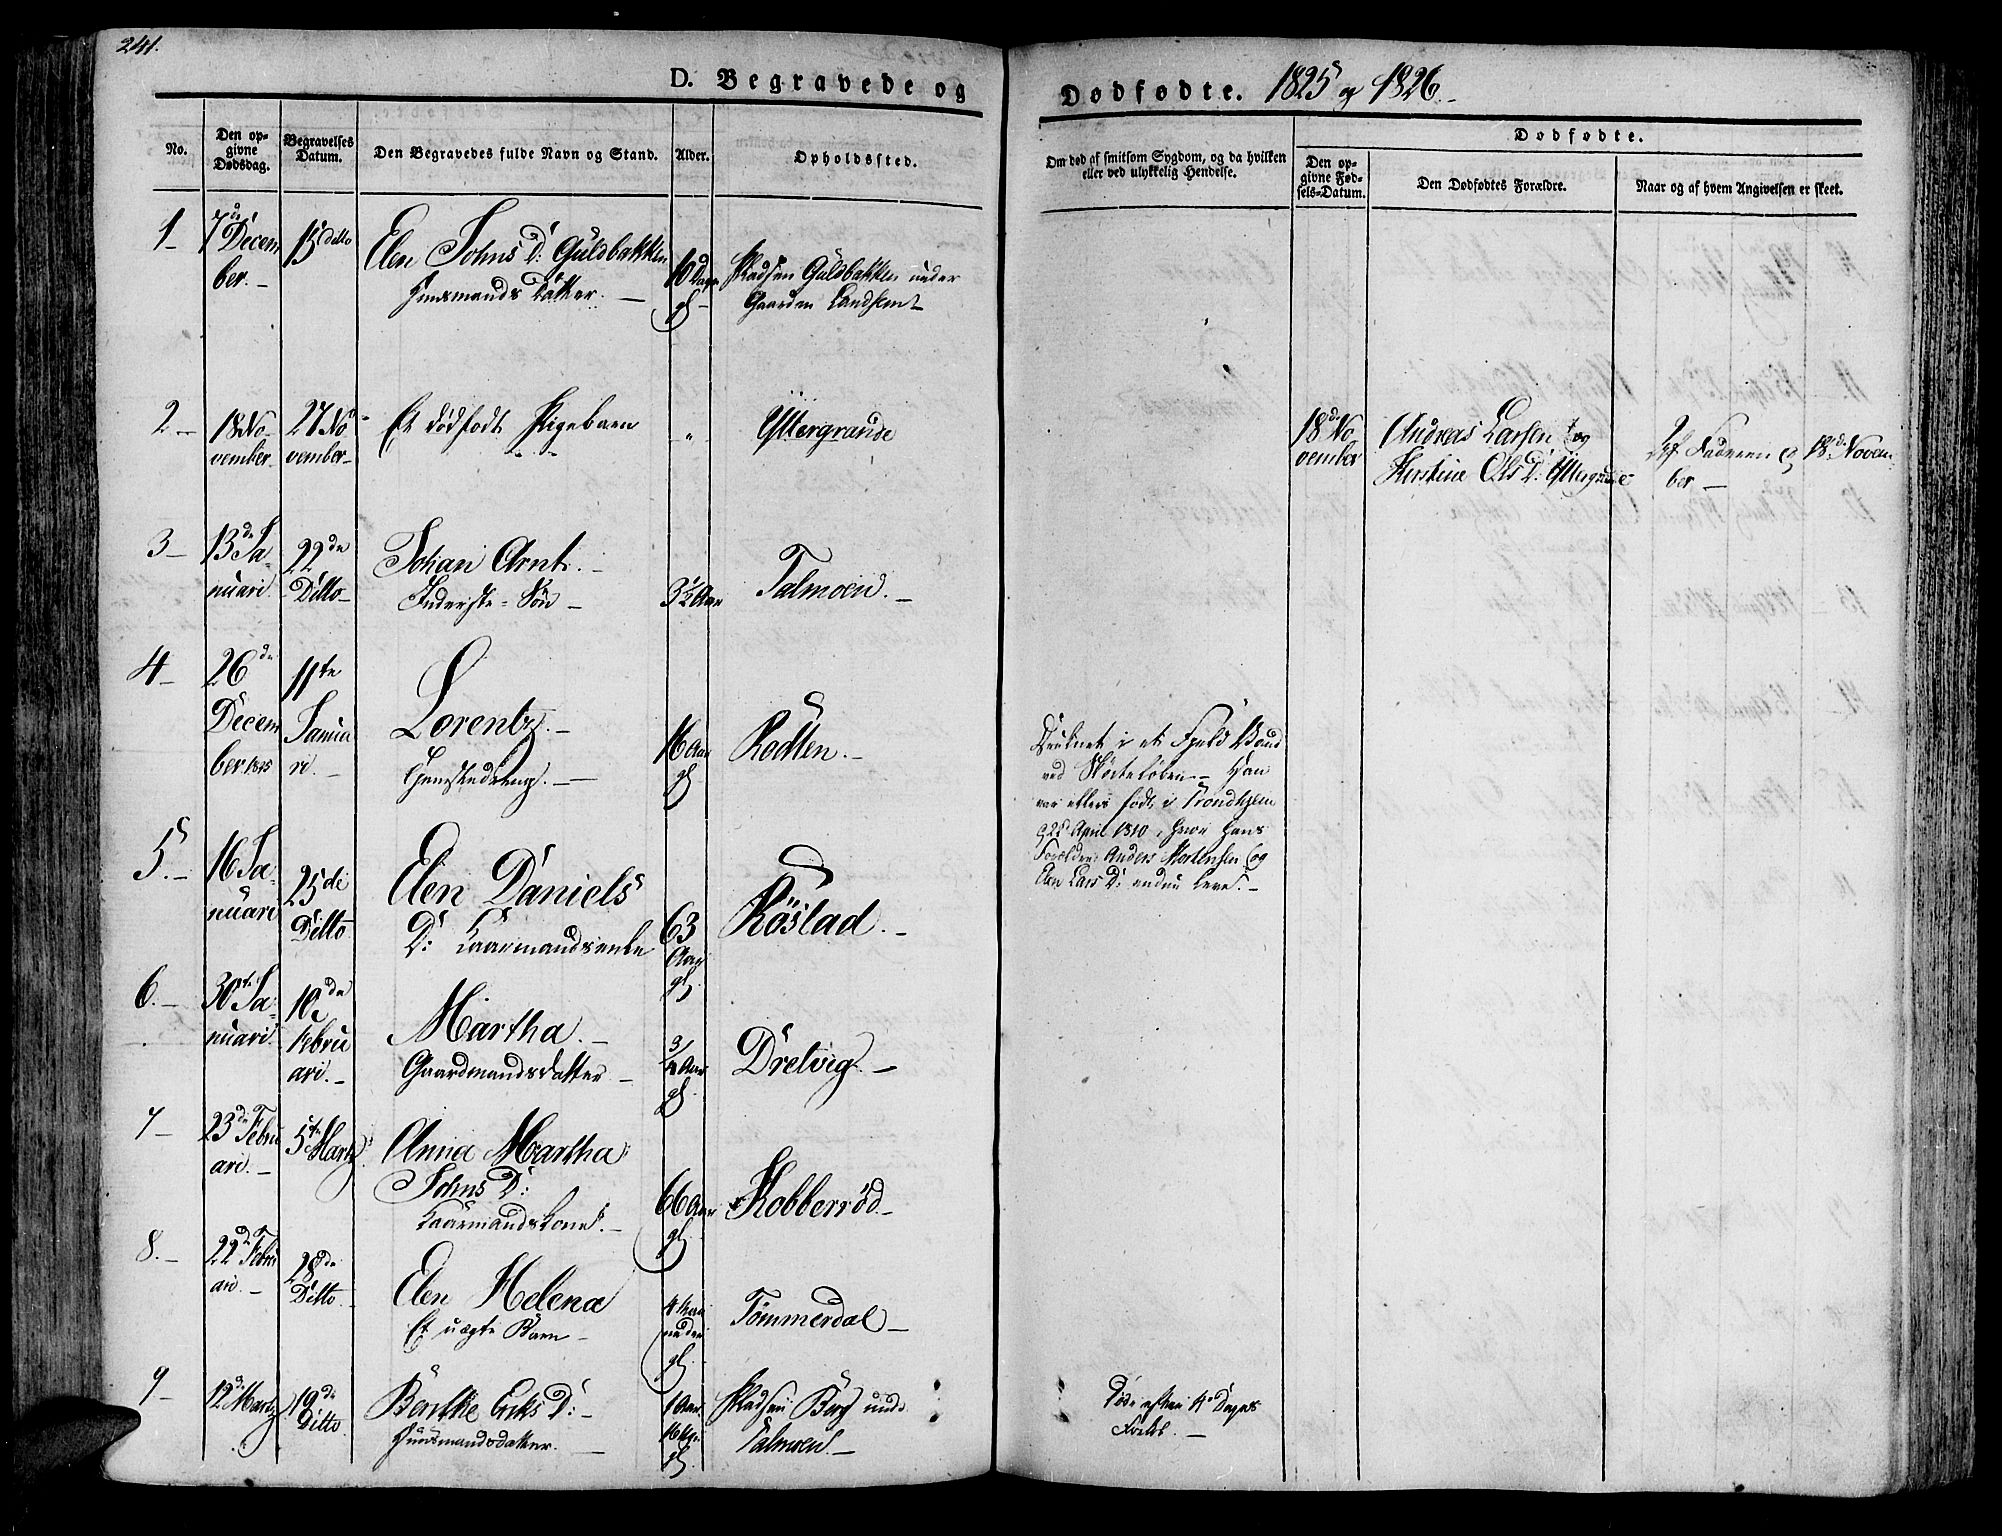 241.
D. Begravede og Dødfødte. 1825 og 1826.
No.
Den opgivne Dødsdag.
Begravelses Datum.
Den Begravedes fulde Navn og Stand.
Alder.
Opholdssted.
Om død af smitsom Sygdom, og da hvilken
eller ved ulykkelig Hendelse.
Dødfødte.
Den opgivne Fødsels-Datum.
Den Dødfødtes Forældre.
Naar og af hvem Angivelsen er skeet.
1 7de Decem
ber.
15 Ditto
Elen Johns D: Guldbakken
Huusmands Datter.
10 Dage
gl.
Pladsen Guldbakken under
Gaarden Landsemt
2 18 No
vember
27 No
vember
Et dødfødt Pigebarn
"
Yttergrande
18de No
vember
Andreas Larsen og
Kerstine Ols D: Yttergrande
Af Faderen 18de Novem
ber
3 13de Ja
nuari
22de
Ditto
Johan Arnt.
Inderste-Søn
3½ Aar
Talmoen.
4 26de
Decem
ber 1825
11te
Janua
ri.
Lorentz.
16 Aar
gl
Rodten.
ved
Han
var ellers født i Trondhjem
April 1810, hvor hans
Forældre Anders Mortensen og
Elen Lars D: endnu leve.
5. 16 Ja
nuari
25de
Ditto
Elen Daniels
D: Gaarmandsenke
63
Aar
gl.
Röstad.
6. 30te Ja
nuari.
10de
Februari.
Martha.
Gaardmandsdatter
3/4 Aar
gl.
Dretvig.
7 23de Febru
ari.
5te Marty
Anna Martha
Johns D:
Gaarmandskone.
66 Aar
gl.
Kobberrød
8. 22de Febru
ari.
28de
Ditto.
Elen Helena
Et uægte Barn
4 Maa
neder
gl.
Tømmerdal
9 12de Marty
19de
Ditto
Eriks D:
Huusmandsdatter.
1 Aar
gl.
Pladsen Berg under
Talmoen.
Døde efter Dages